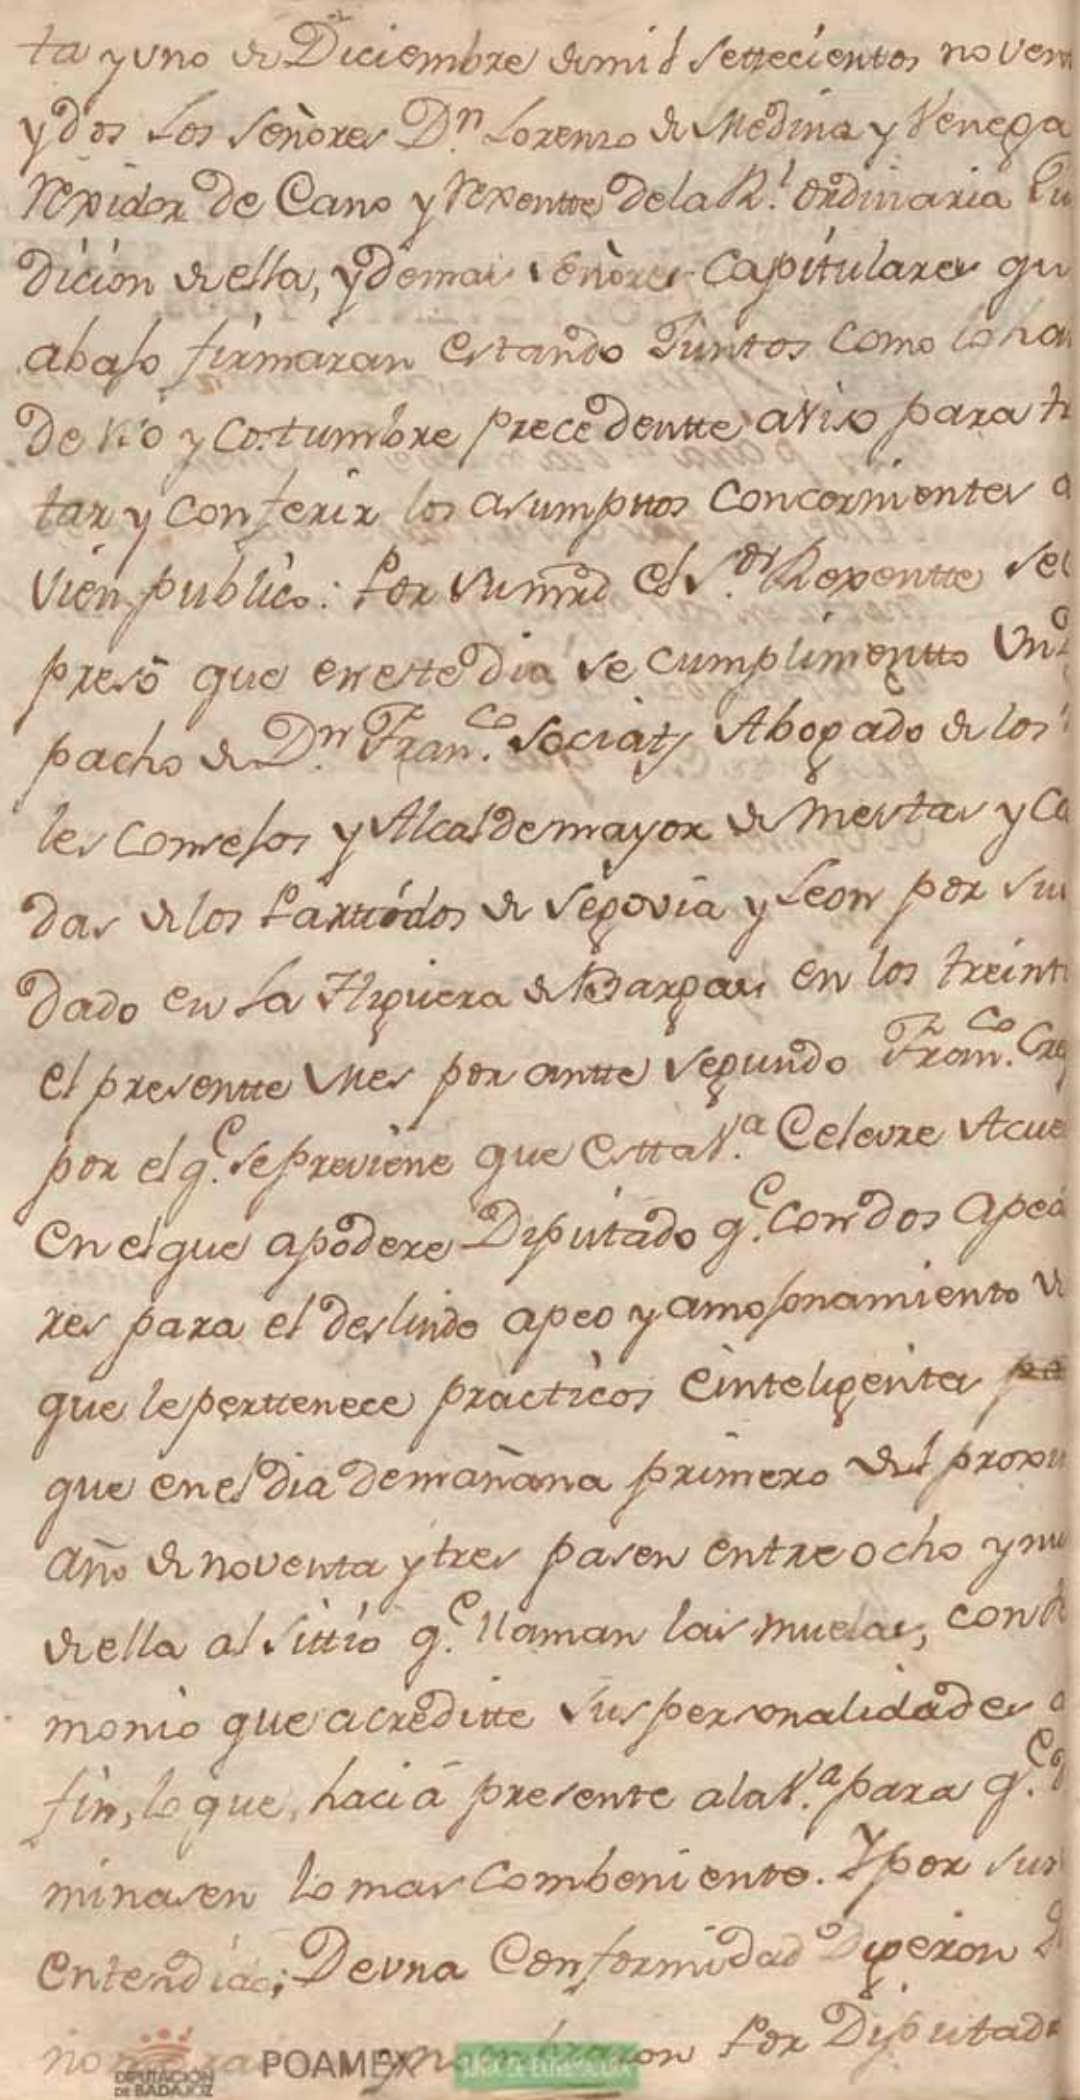 ta y uno de Diciembre de mil settecientos noven
y dos los Señores Dn. Lorenzo de Medina y Venega
Rexidor Decano y Rexentte de la Rl. ordinaria Ju
dicion de ella, y demas señores Capitulares qu
abajo firmaran estando Juntos como lo han
de uso y Costumbre precedentte aviso para tr
tar y Conferir los asumpttos Concernientes a
vien publico: Por su mrd el Sor. Rexentte se
presó que en este dia se cumplimentto un
pacho de Dn. Franco. Abogado de los
les Consejos y Alcalde mayor de Mestas y Ca
das de los Partidos de Segovia y Leon por su
dado en La Higuera de Bargas en los treint
el presentte Mes por antte Segundo Franco.
por el qe. se previene que Estta Va. Celevre Acue
en el que apodere Diputado qe. con dos apea
res para el deslindo apeo y amojonamiento de
que le perttenece practicos e inteligentes
que en el dia de mañana primero del proxi
año de noventa y tres pasen entre ocho y nu
de ella al sittio qe. llaman las muelas, con
monio que acreditte sus personalidades a
fin, lo que hacia presente a la Va. para qe.
minasen lo mas combeniente. Y por sus
entendida; De una Conformidad Digeron
por Diputado
DIPUTACIÓN
DE BADAJOZ
POAMEX
JUNTA DE EXTREMADURA